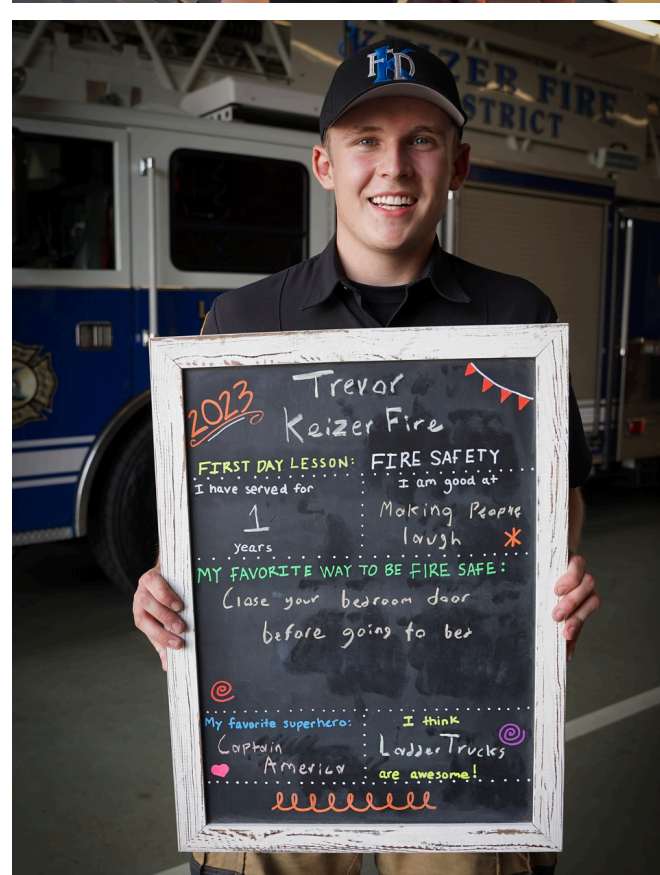 KFD
KEIZER FIRE
DISTRICT
2023
Trevor
Keizer Fire
FIRST DAY LESSON: FIRE SAFETY
I have served for
1
years
I am good at
Making People
laugh
MY FAVORITE WAY TO BE FIRE SAFE:
Close your bedroom door
before going to bed
My favorite superhero:
Captain
America
I think
Ladder Trucks
are awesome!